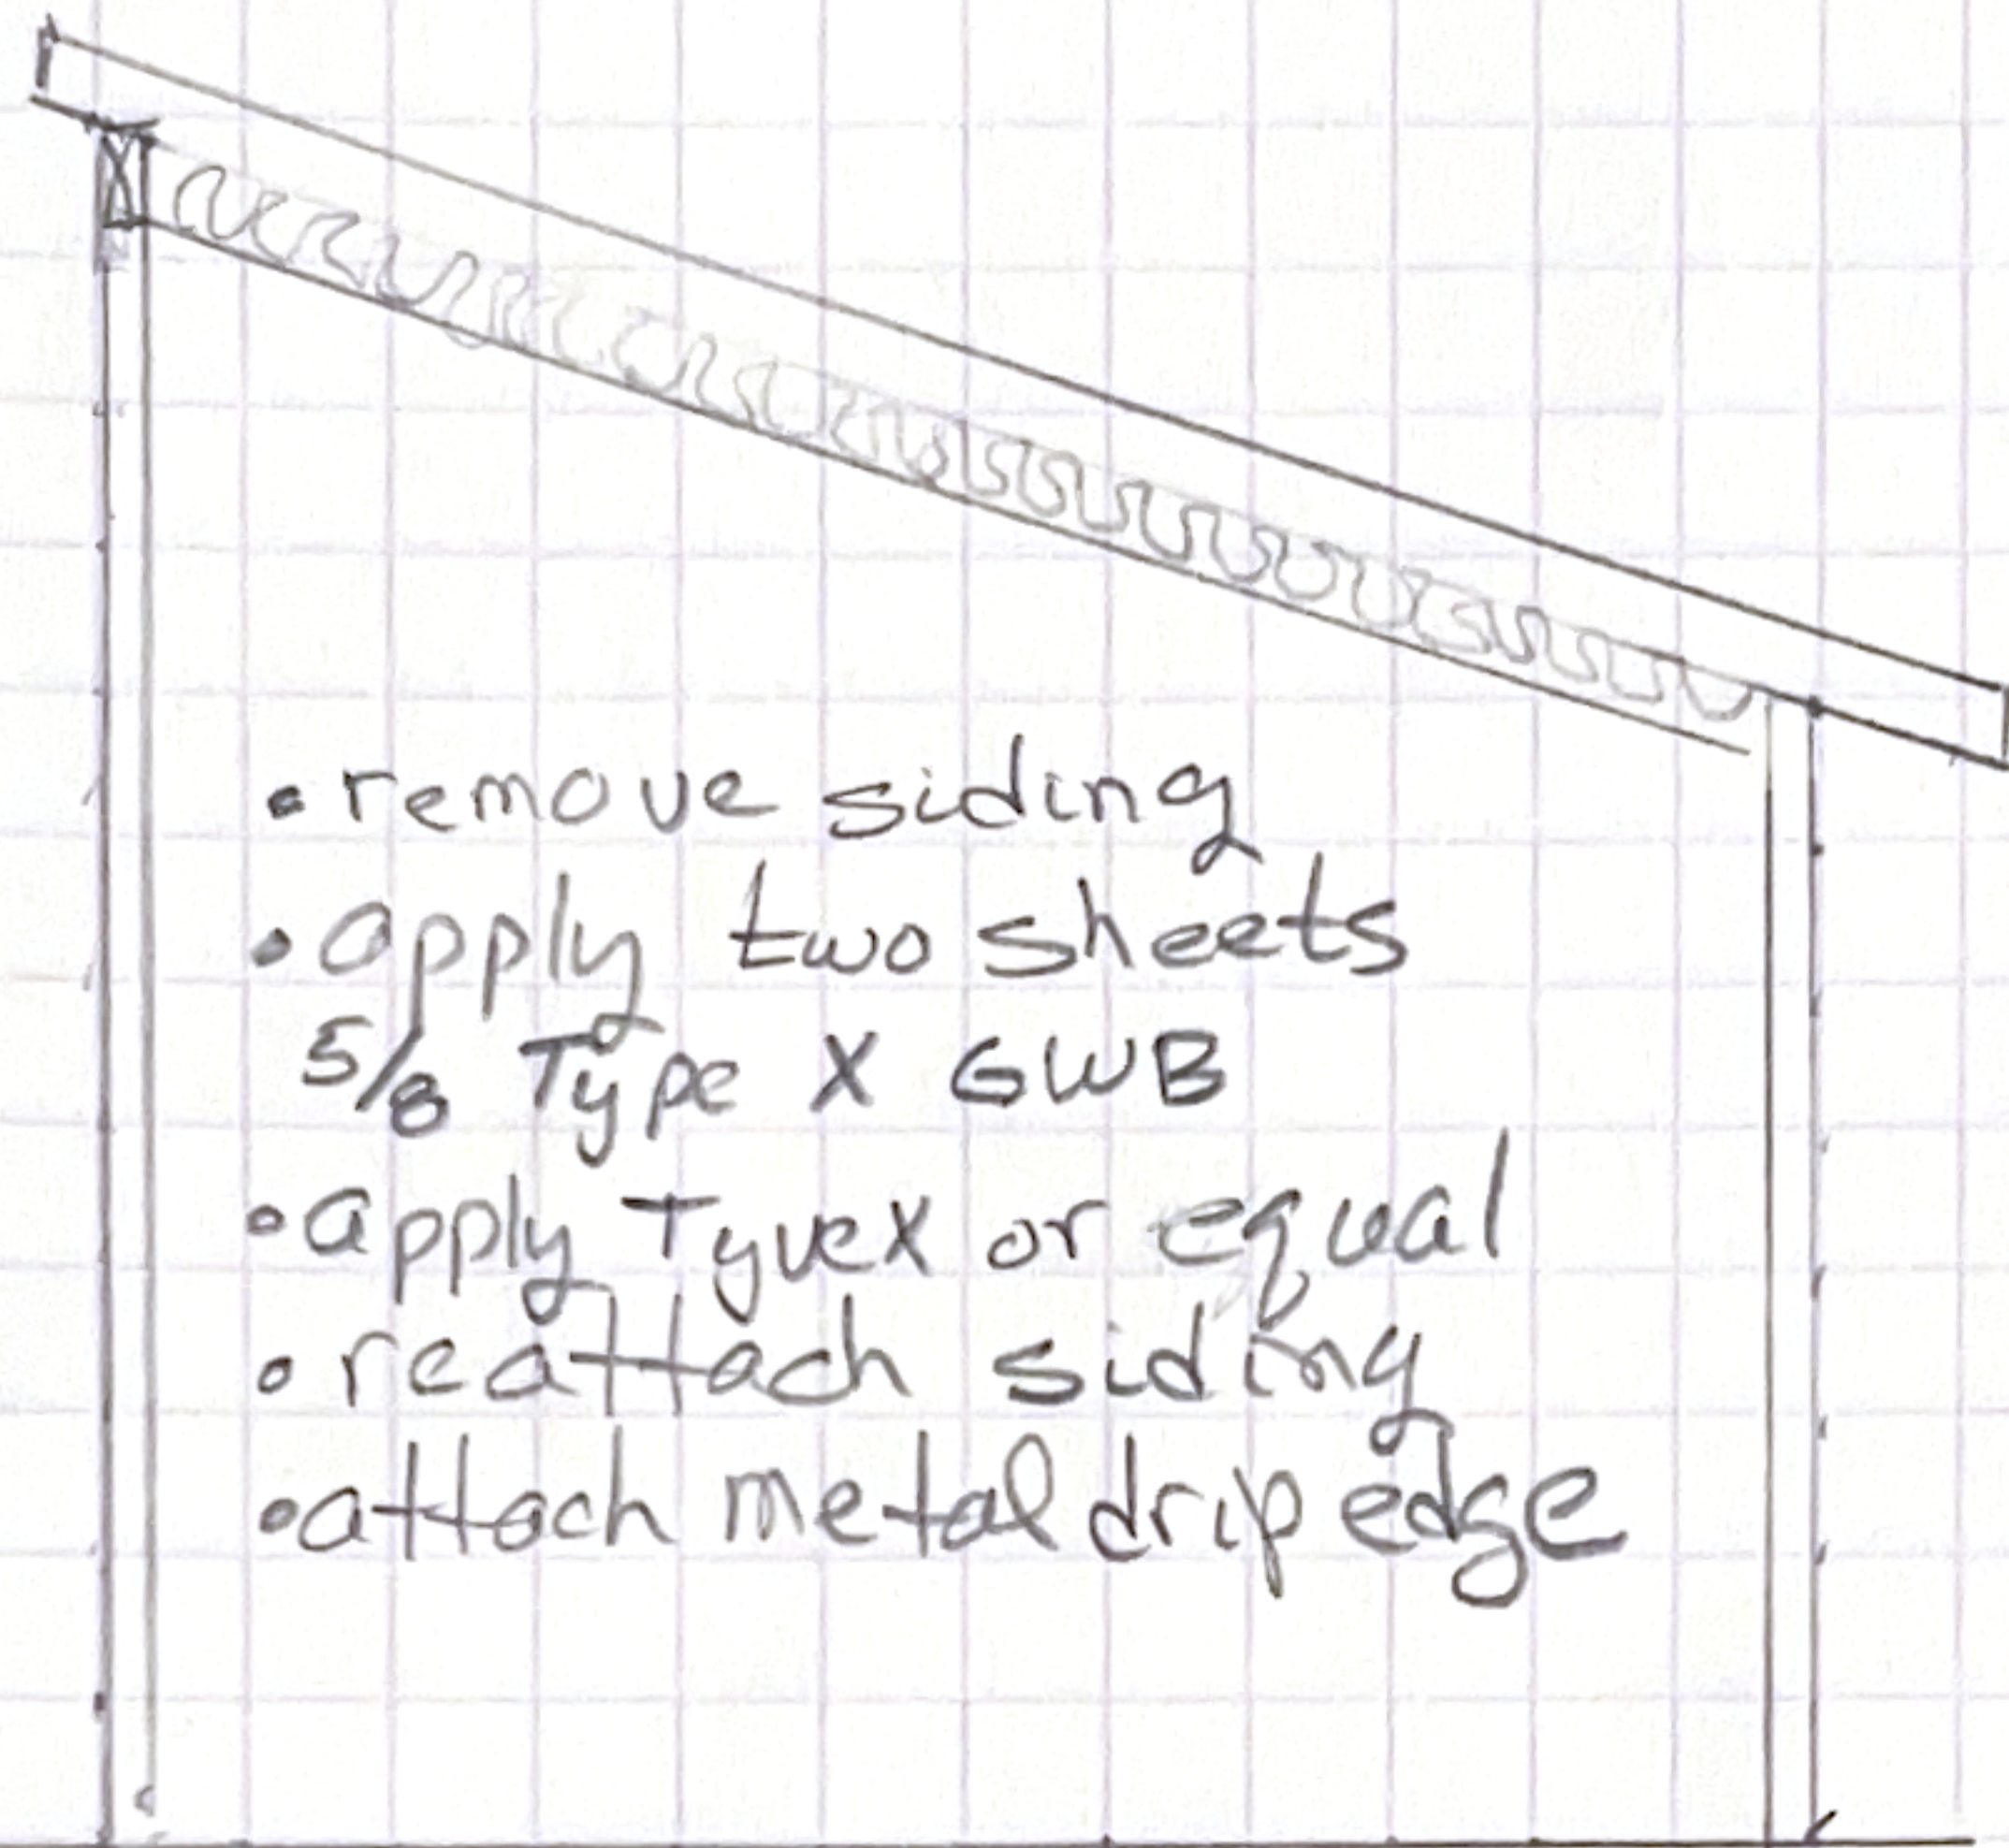 • remove siding
• apply two sheets
5/8 Type X GWB
• apply Tyvex or equal
• reattach siding
• attach metal drip edge